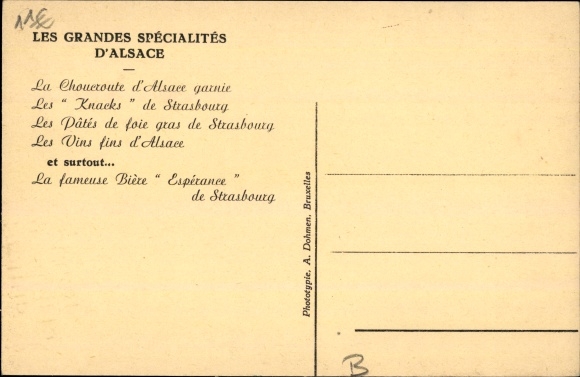 11€
LES GRANDES SPÉCIALITÉS
D'ALSACE
La Choucroute d'Alsace garnie
Les “ Knacks ” de Strasbourg
Les Pâtés de foie gras de Strasbourg
Les Vins fins d'Alsace
et surtout...
La fameuse Bière “ Espérance ”
de Strasbourg
Phototypie. A. Dohmen. Bruxelles
B